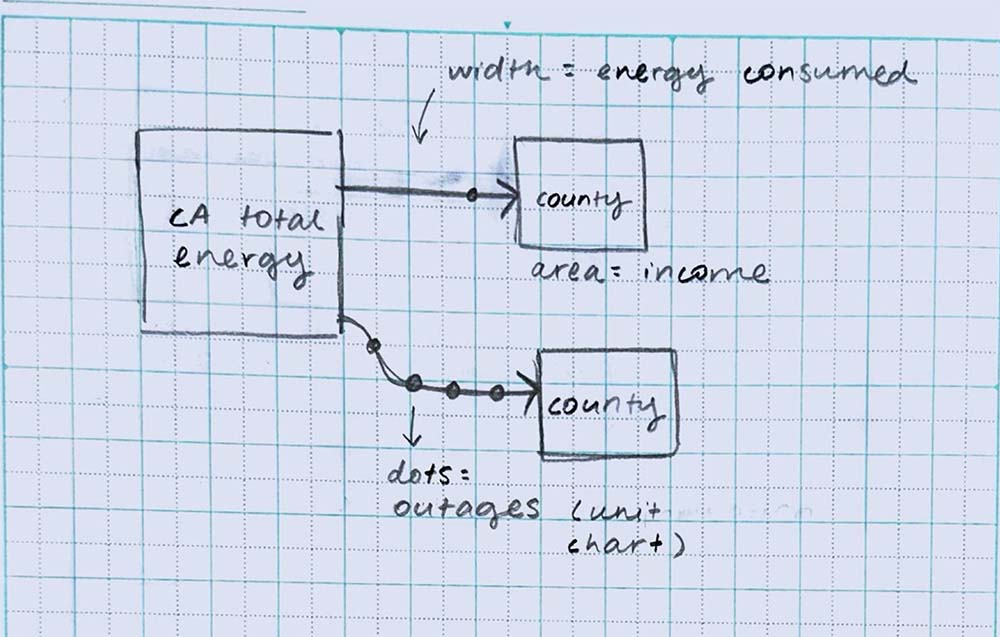 width = energy consumed
CA total
energy
county
area = income
county
dots =
outages (unit
chart)